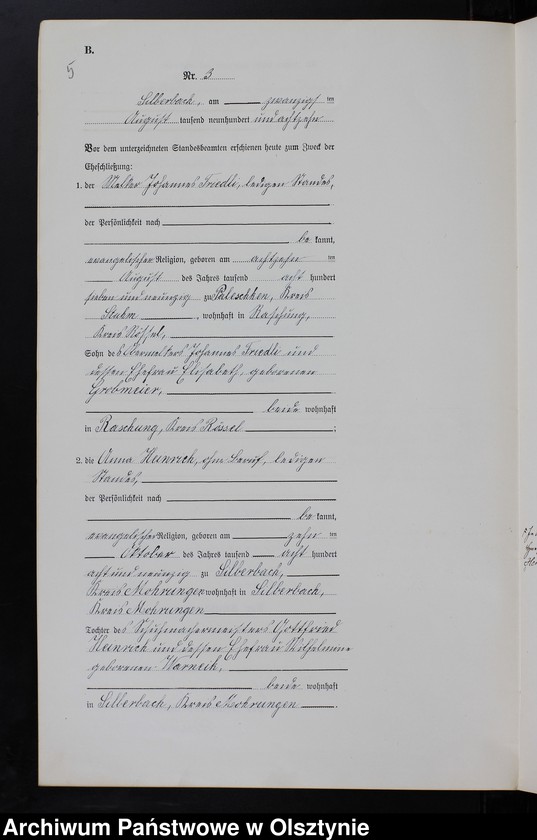 B.
5
Nr. 3
Silberbach, am zwanzigsten
August tausend neunhundert und achtzehn
Vor dem unterzeichneten Standesbeamten erschienen heute zum Zweck der
Eheschließung:
1. der Melker Johannes Friedli, ledigen Standes,
der Persönlichkeit nach
be kannt,
evangelischer Religion, geboren am achtzehn ten
August des Jahres tausend acht hundert
sieben und neunzig zu Paleschken, Kreis
Stuhm, wohnhaft in Raschung,
Kreis Rössel,
Sohn des Obermelkers Johannes Friedli und
dessen Ehefrau Elisabeth, geborenen
Grobmeier,
beide wohnhaft
in Raschung, Kreis Rössel;
2. die Anna Heinrich, ohne Beruf, ledigen
Standes,
der Persönlichkeit nach
be kannt,
evangelischer Religion, geboren am zehn ten
Oktober des Jahres tausend acht hundert
acht und neunzig zu Silberbach,
Kreis Mohrungen wohnhaft in Silberbach,
Kreis Mohrungen
Tochter des Schuhmachermeisters Gottfried
Heinrich und dessen Ehefrau Wilhelmine
geborenen Warneck,
beide wohnhaft
in Silberbach, Kreis Mohrungen.
Archiwum Państwowe w Olsztynie